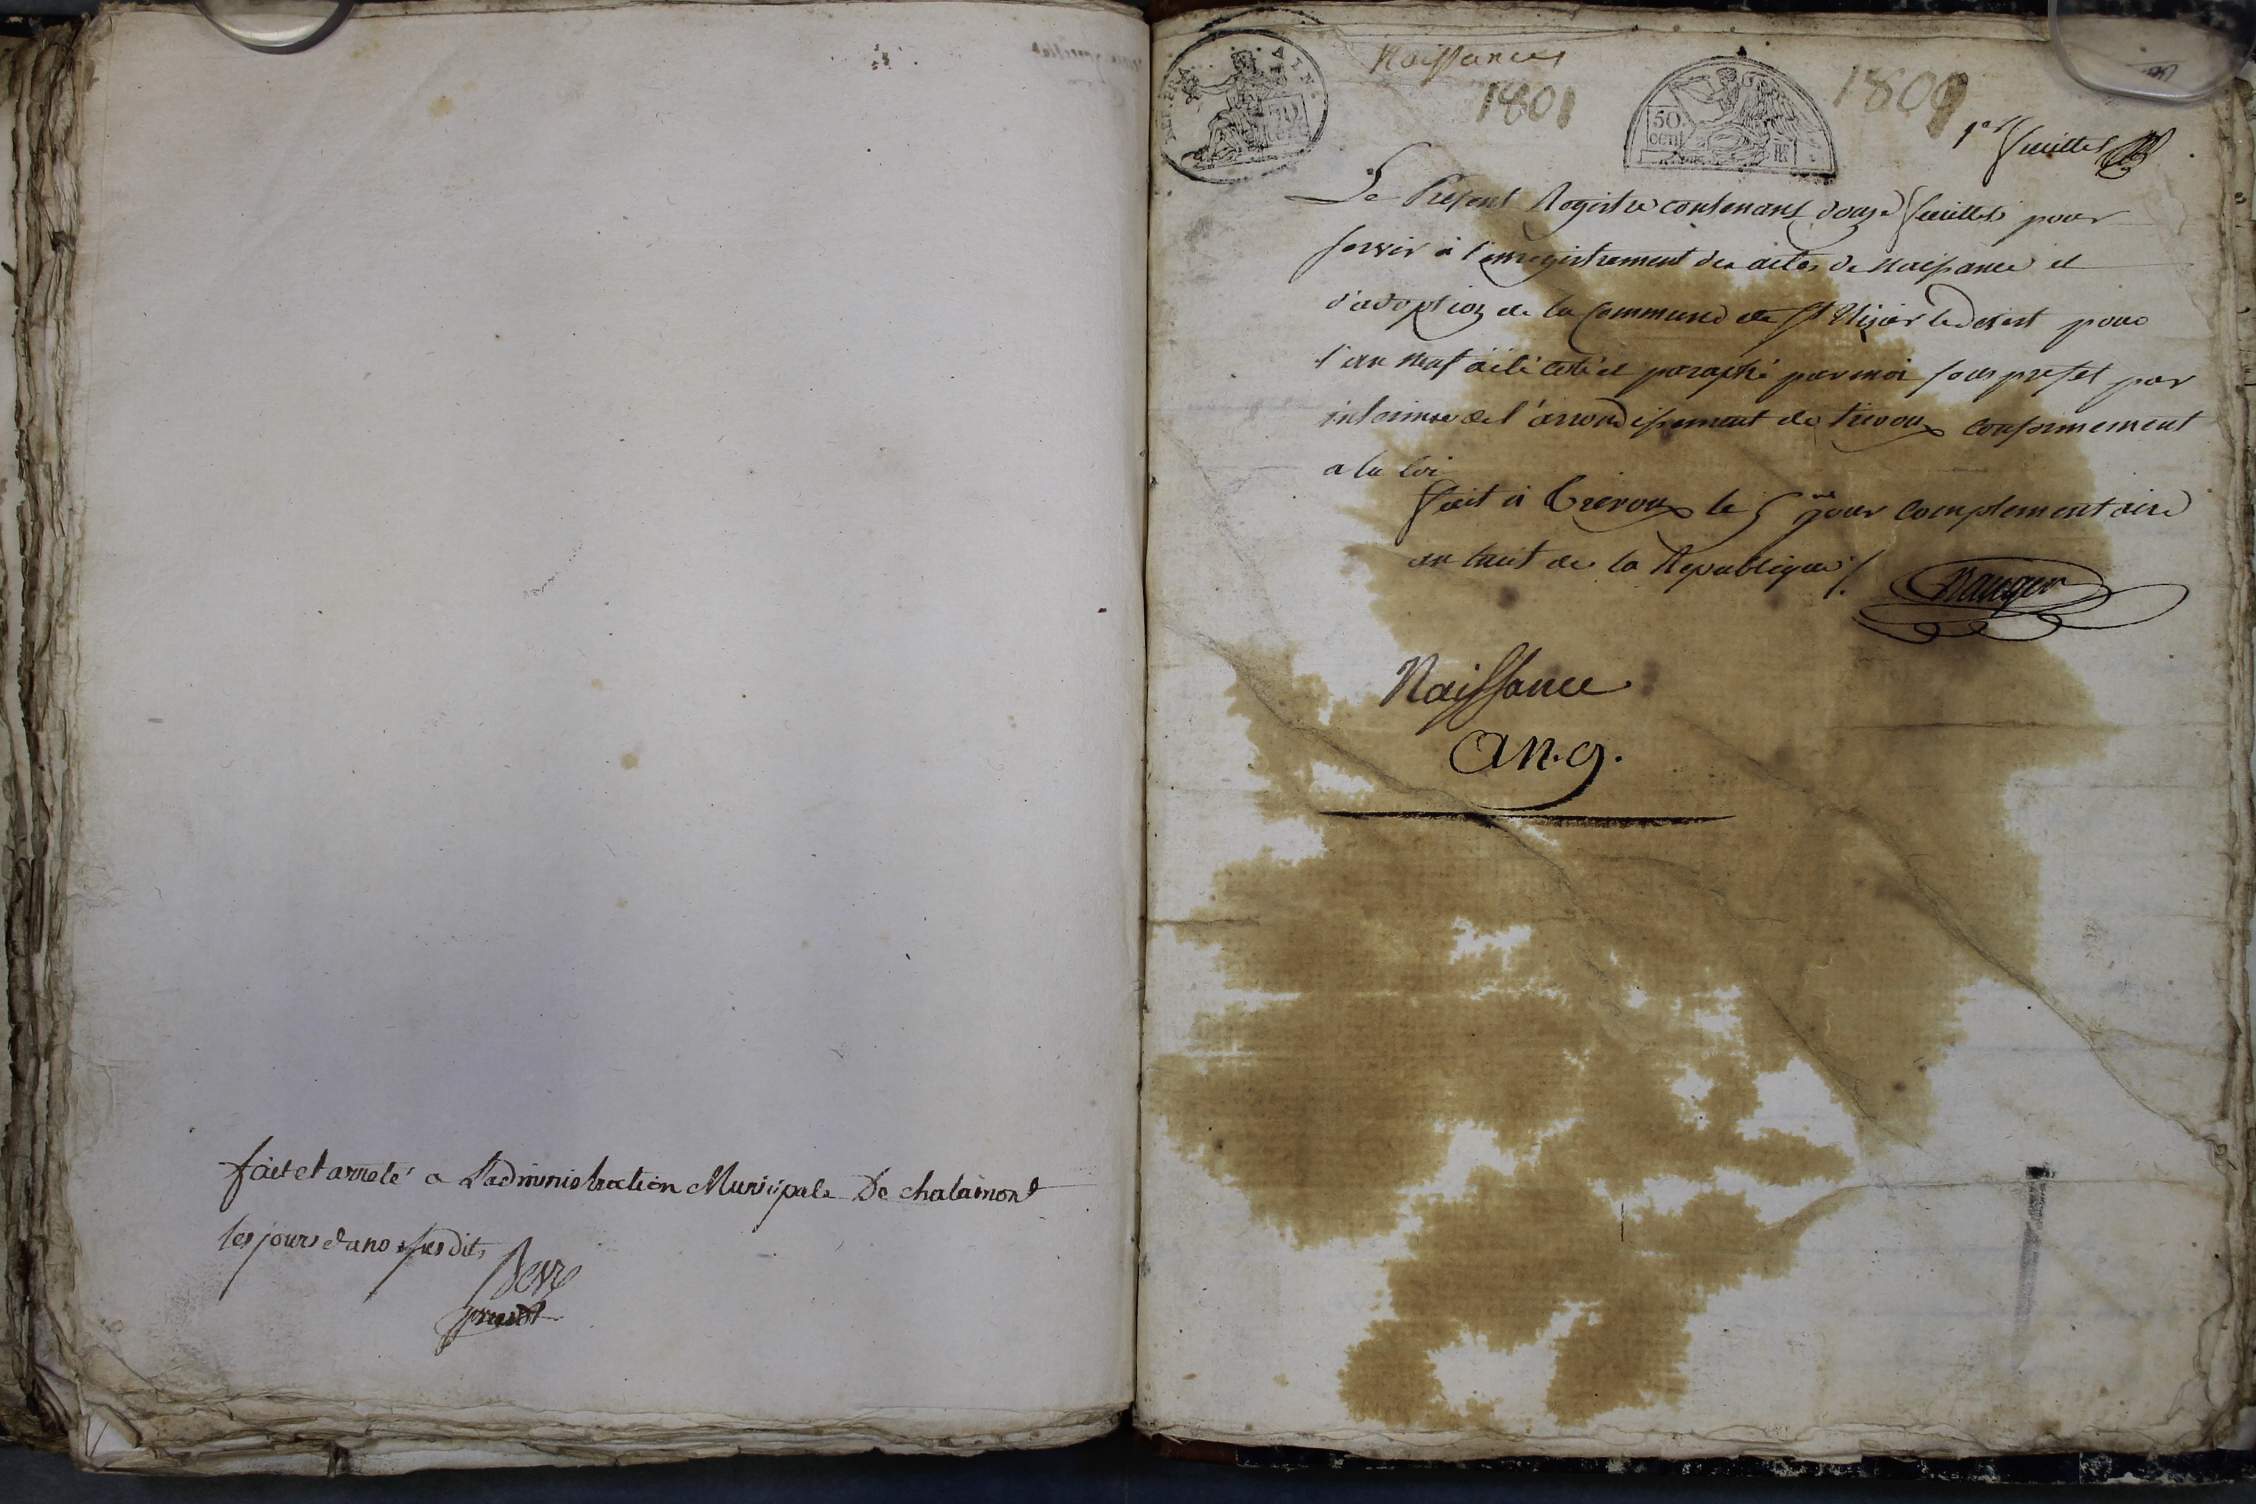 fait et arreté a L'administration Municipale De chalamont
les jours et ano susdits
REP. FRA
Naissances
1801
50
cent
1809
1er feuillet
Le Présent Registre contenant douze feuillets pour
servir à l'enregistrement des actes de Naissance et
d'adoption de la Commune de St Nizier le desert pour
l'an neuf a été coté et paraphé par moi sous prefet par
interime de l'arrondissement de trevoux conformement
a la loi
fait à Trévoux le 5me jour complementaire
an huit de la Republique ./.
Naissance
an. 9.